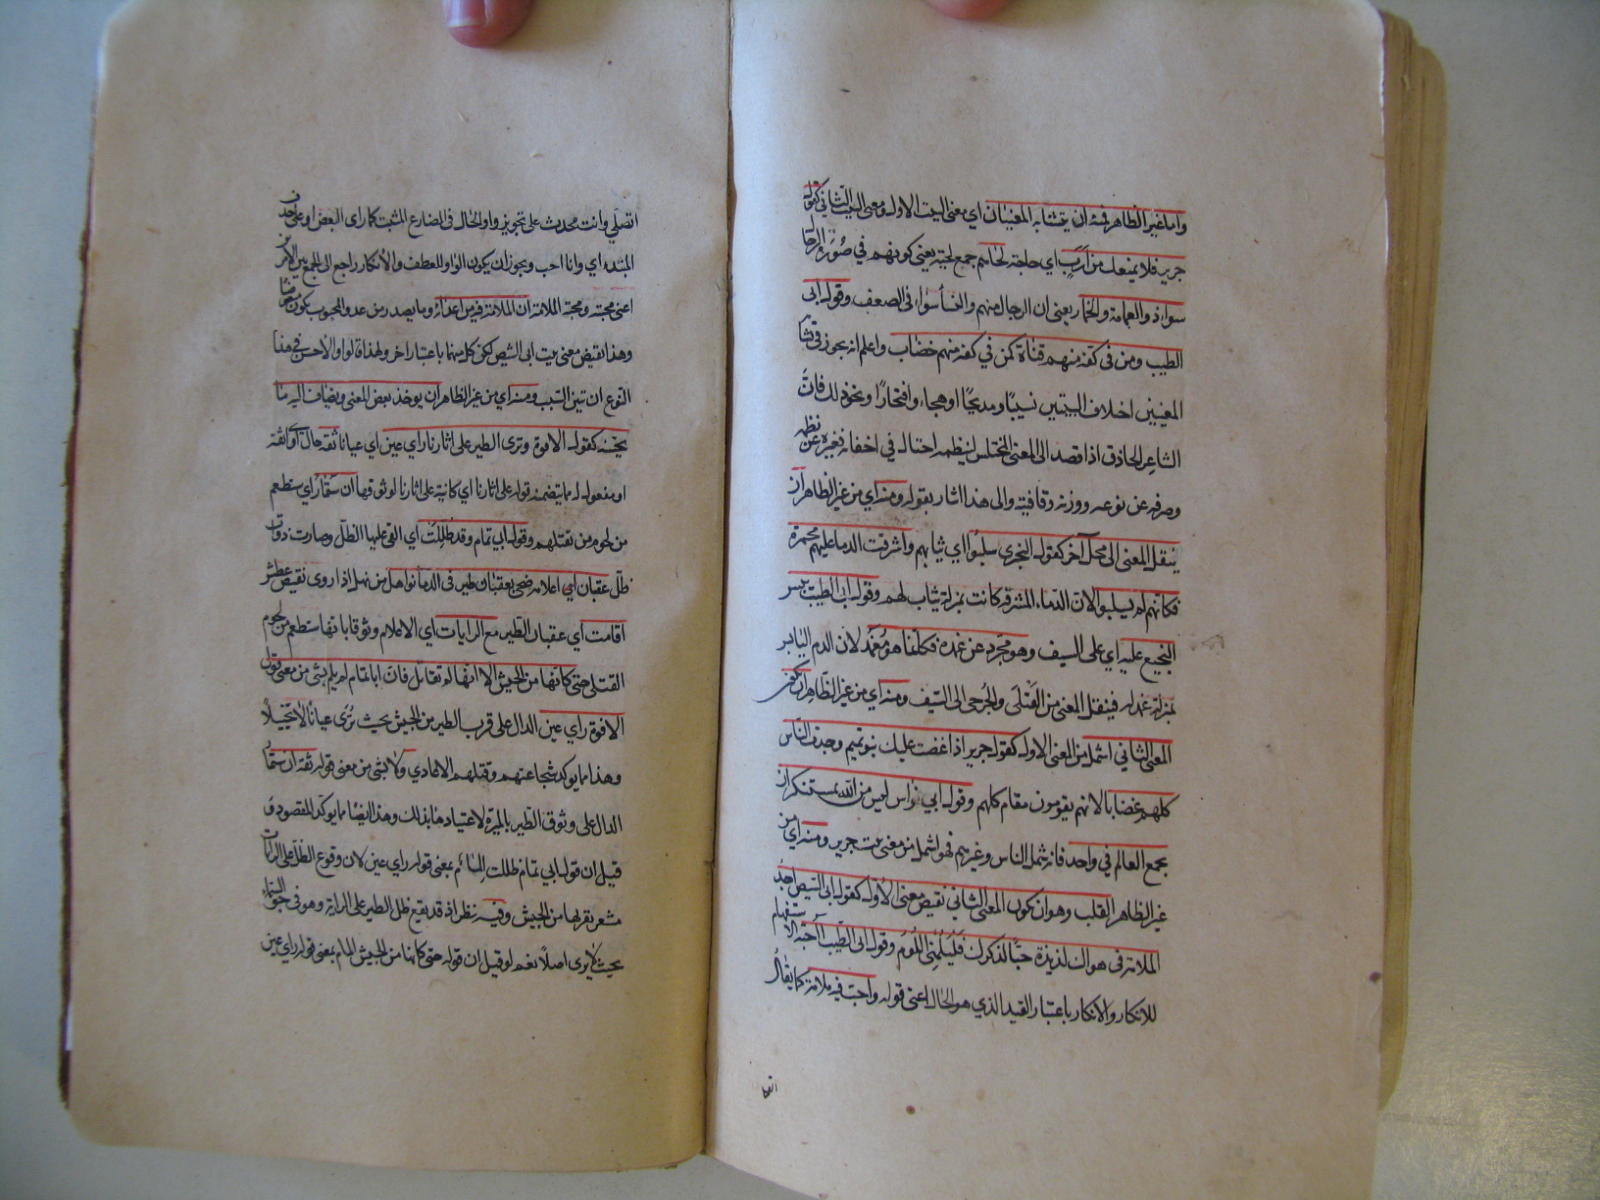 واما غير الظاهر فمنه ان يتشابه المعنيان اي معنى البيت الاول ومعنى البيت الثاني كقول
جرير فلا يمنعك من ارب اي حاجة لحاهم جمع لحية يعني كونهم في صورة الرجال
سواء ذو العمامة والخمار يعني ان الرجال منهم والنساء سواء في الضعف وقول ابى
الطيب ومن في كفه منهم قناة كمن في كفه منهم خضاب واعلم انه يجوز في تشابه
المعنيين اختلاف البيتين نسيبا ومديحا وهجاء وافتخارا ونحو ذلك فان
الشاعر الحاذق اذا قصد الى المعنى المختلس لينظمه احتال في اخفائه فغيره عن نظمه
وصرفه عن نوعه ووزنه وقافيته والى هذا اشار بقوله ومنه اي من غير الظاهر ان
ينقل المعنى الى محل آخر كقول البحتري سلبوا اي ثيابهم واشرقت الدماء عليهم محمرة
فكانهم لم يسلبوا لان الدماء المشرقة كانت بمنزلة ثياب لهم وقول ابى الطيب يبس
النجيع عليه اي على السيف وهو مجرد عن غمده فكانما هو مغمد لان الدم اليابس
بمنزلة غمد له فينقل المعنى من القتلى والجرحى الى السيف ومنه اي من غير الظاهر ان يكون
المعنى الثاني اشمل من المعنى الاول كقول جرير اذا غضبت عليك بنو تميم وجدت الناس
كلهم غضابا لانهم يقومون مقام كلهم وقول ابي نواس ليس من الله بمستنكر ان
يجمع العالم في واحد فانه شمل الناس وغيرهم فهو اشمل من معنى بيت جرير ومنه اي من
غير الظاهر القلب وهو ان يكون المعنى الثاني نقيض معنى الاول كقول ابى الشيص اجد
الملامة في هواك لذيذة حبا لذكرك فليلمني اللوم وقول ابى الطيب أأحبه الاستفهام
للانكار والانكار باعتبار القيد الذي هو الحال اعنى قوله واحب فيه ملامة كما يقال
اتصلي وانت محدث على تجويز واو الحال في المضارع المثبت كما راى البعض او على حذف
المبتدا اي وانا احب ويجوز ان يكون الواو للعطف والانكار راجع الى الجمع بين الامرين
اعنى محبته ومحبة الملامة ان الملامة فيه من اعدائه وما يصدر من عدو المحبوب يكون مبغوضا
وهذا نقيض معنى بيت ابى الشيص لكن كل منهما باعتبار اخر ولهذا قالوا والاحسن في هذا
النوع ان تبين السبب ومنه اي من غير الظاهر ان يوخذ بعض المعنى ويضاف اليه ما
يحسنه كقول الافوه وترى الطير على اثارنا راي عين اي عيانا ثقة حال اى واثقة
او مفعول له مما يتضمنه قوله على اثارنا اي كائنة على اثارنا لوثوقها ان ستمار اي ستطعم
من لحوم من نقتلهم وقول ابى تمام وقد ظللت اي القى عليها الظل وصارت ذوات
ظل عقبان اي اعلامه ضحى بعقبان طير في الدماء نواهل من نهل اذا روى نقيض عطش
اقامت اي عقبان الطير مع الرايات اي الاعلام وثوقا بانها ستطعم من لحوم
القتلى حتى كانها من الجيش الا انها لم تقاتل فان ابا تمام لم يلم بشي من معنى قول
الافوه راي عين الدال على قرب الطير من الجيش بحيث ترى عيانا لا تخيلا
وهذا مما يوكد شجاعتهم وقتلهم الاعادي ولا بشي من معنى قوله ثقة ان ستمار
الدال على وثوق الطير بالميرة لاعتيادها بذلك وهذا ايضا مما يوكد المقصود ق
قيل ان قول ابي تمام ظللت المام بمعنى قوله راي عين لان وقوع الظل على الرايات
مشعر بقربها من الجيش وفيه نظر اذ قد يقع ظل الطير على الراية وهو في جو السماء
بحيث لا يرى اصلا نعم لو قيل ان قوله حتى كانها من الجيش المام بمعنى قوله راي عين